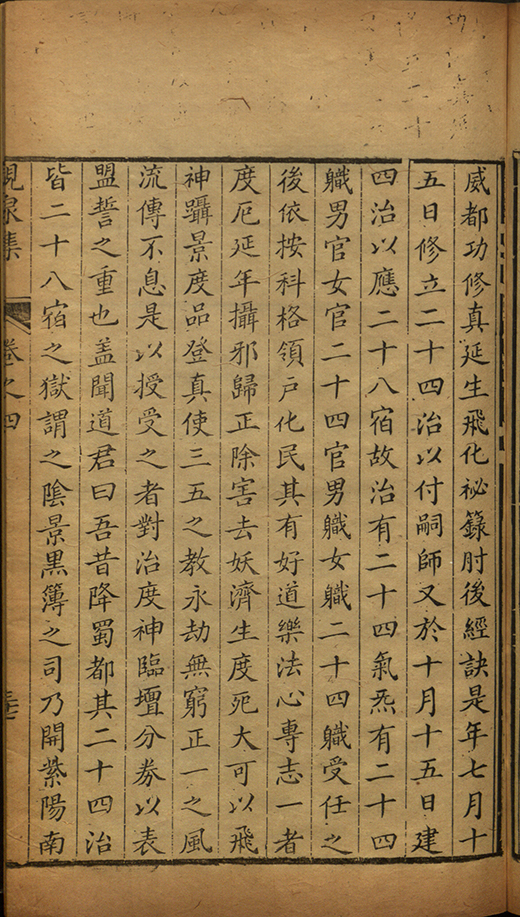 威都功修真延生飛化祕籙肘後經訣是年七月十
五日修立二十四治以付嗣師又於十月十五日建
四治以應二十八宿故治有二十四氣炁有二十四
軄男官女官二十四官男軄女軄二十四軄受任之
後依按科格領戸化民其有好道樂法心專志一者
度厄延年攝邪歸正除害去妖濟生度死大可以飛
神躡景度品登真使三五之教永劫無窮正一之風
流傳不息是以授受之者對治度神臨壇分劵以表
盟誓之重也盖聞道君曰吾昔降蜀都其二十四治
皆二十八宿之獄謂之陰景黒簿之司乃開紫陽南
峴泉集 卷之四